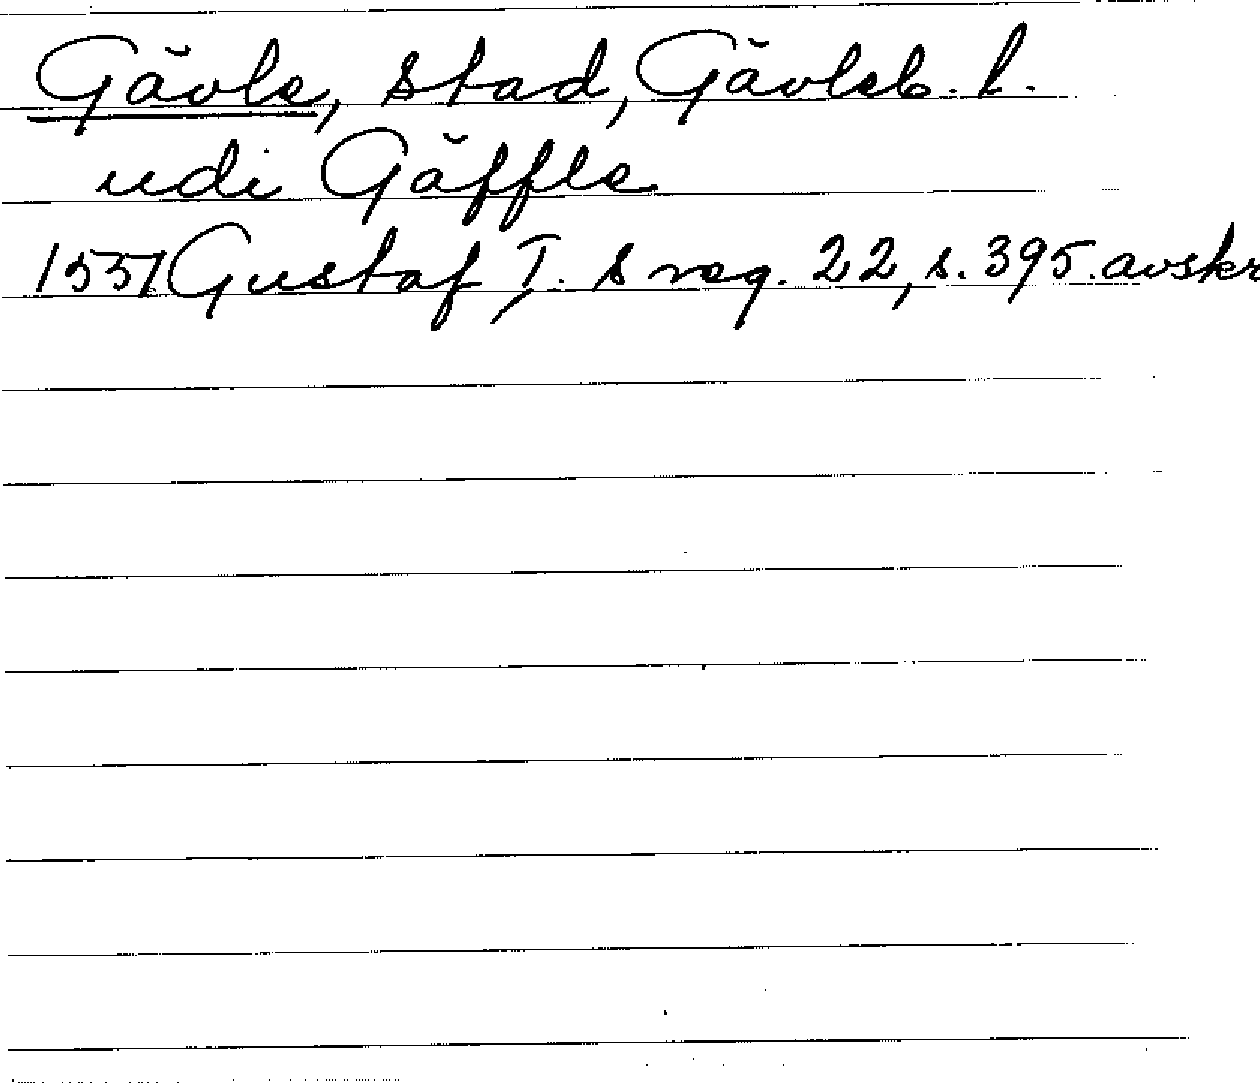 Gävle, stad, Gävleb. l.
udi Gäffle
1551 Gustaf I. s reg. 22, s. 395. avskr